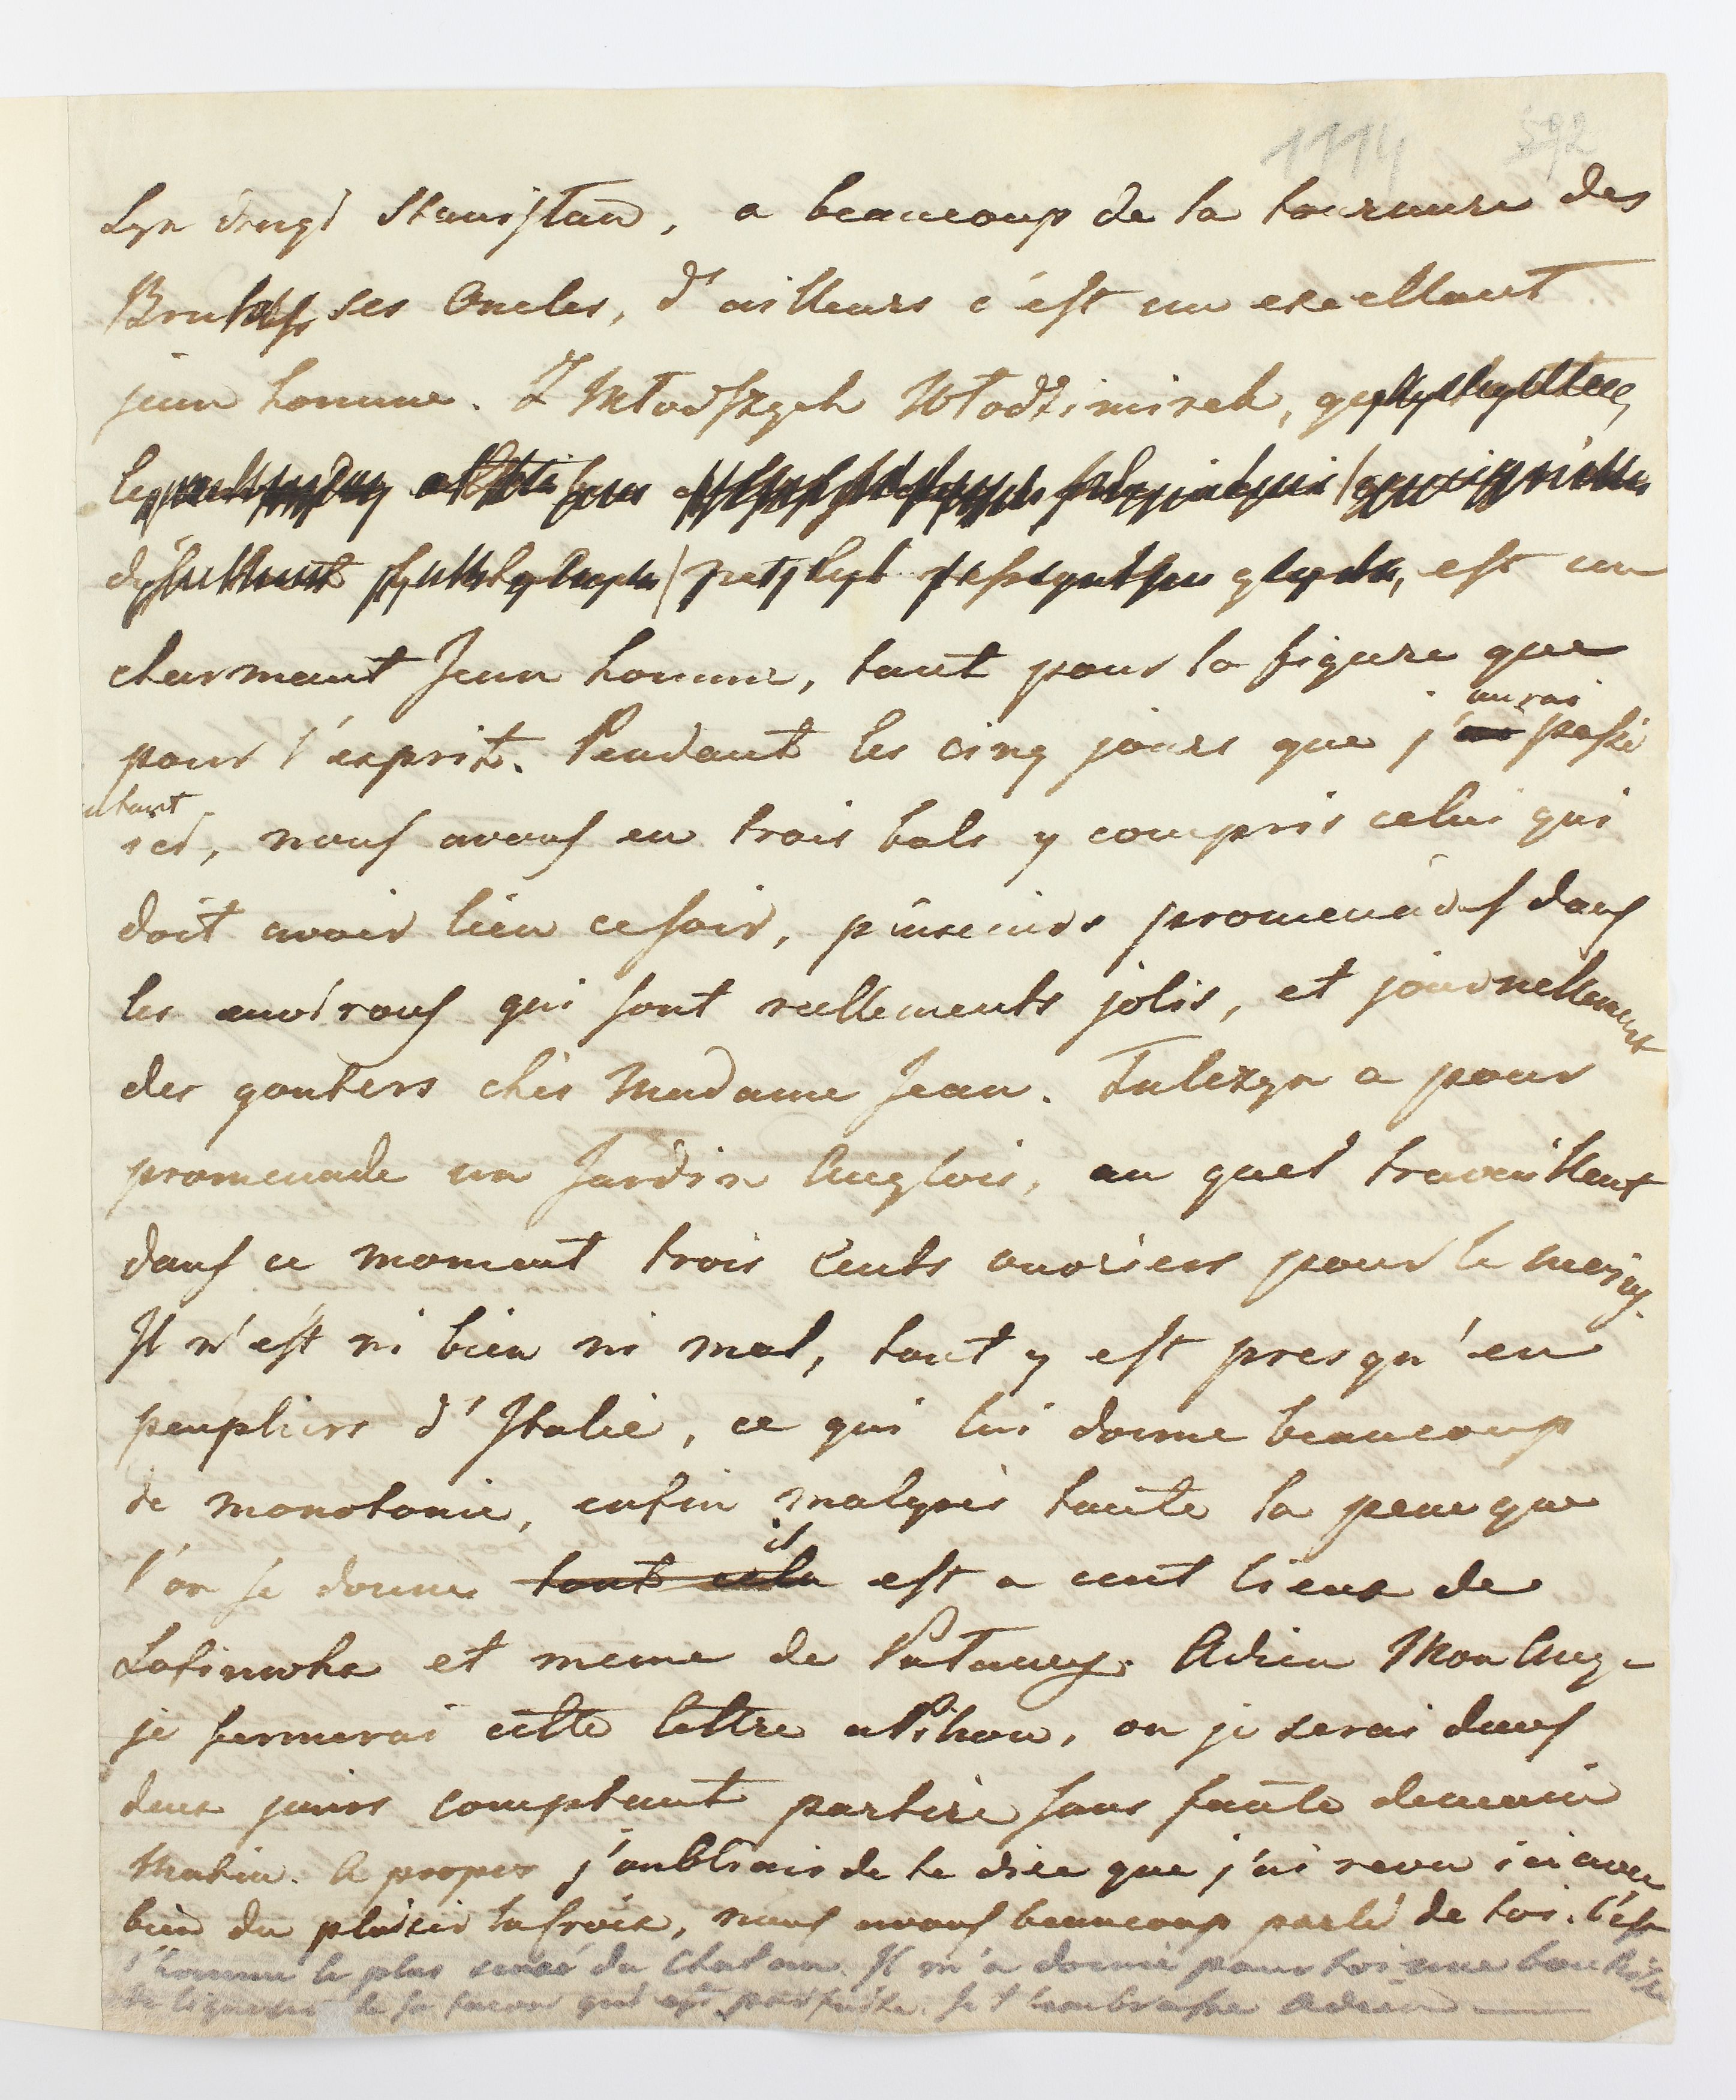 1114 592
Syn drugi Stanisław, a beaucoup de la tournure des
ses Oncles, d'ailleurs c'est un excellant
jeun homme. Z Młodszych Włodzimirek,
est un
charmant Jeun homme, tant pour la figure que
pour l'esprit. Pendant les cinq jours que j'aurai passé
ici, nous avons eu trois bals y compris celui qui
doit avoir lieu ce soir, plusieurs promenades dans
les environs qui sont reellements jolis, et journellement
des gouters chès Madame Jean. Tulczyn a pour
promenade un Jardin Anglois, au quel travaillent
dans ce moment trois Cents ouvriers pour le moins.
Il n'est ni bien ni mal, tout y est presqu'en
peupliers d'Italie, ce qui lui donne beaucoup
de monotonie, enfin malgrès toute la peine que
l'on se donne tout cela il est a cent lieux de
Zofiowka et meme de Puławy. Adieu Mon Ange
je fermerai cette lettre a Pikow, ou je serai dans
deux jours comptant partire sans faute demain
Matin. A propos j'oubliais de te dire que j'ai revu ici avec
bien du plaisir Lafroix, nous avons beaucoup parlé de toi. C'est
l'homme le plus sensé du Chateau. Il m'a donné pour toi une bouteille
de liqueur de sa facon qui est parfaite. Je t'embrasse Adieu